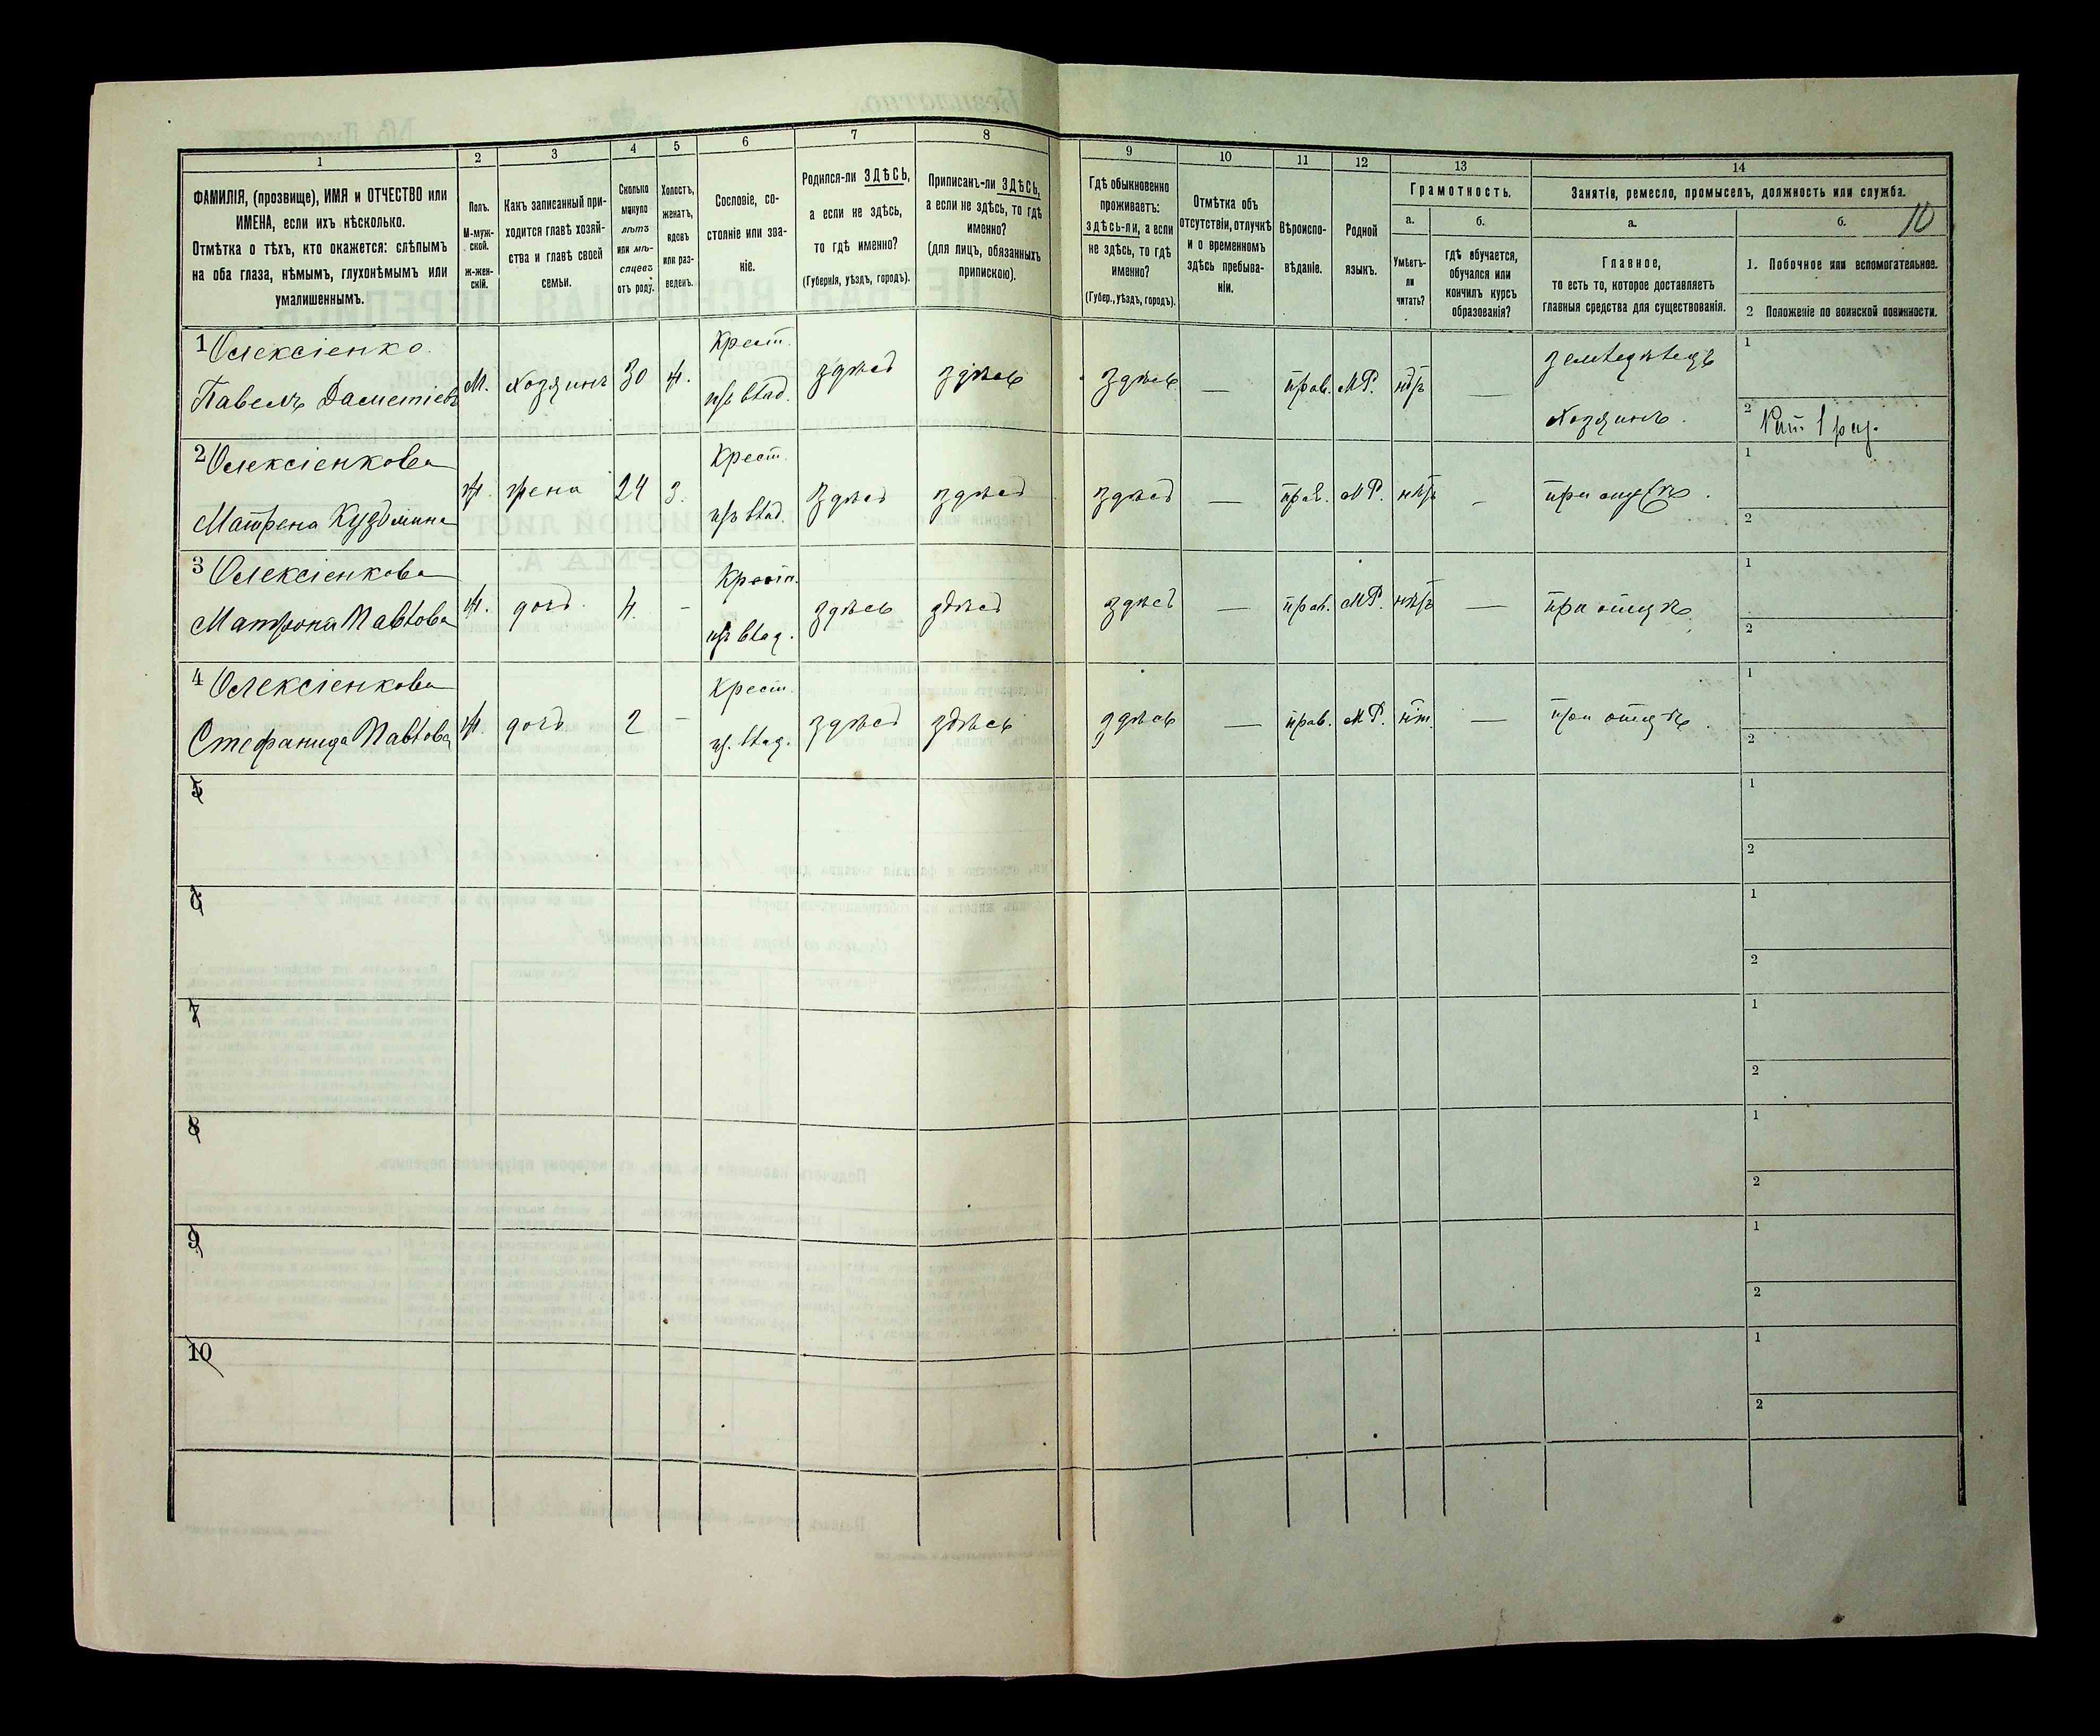 1 2 3 4 5 6 7 8 9 10 11 12 13 14
ФАМИЛІЯ, (прозвище), ИМЯ и ОТЧЕСТВО или
ИМЕНА, если ихъ нѣсколько.
Отмѣтка о тѣхъ, кто окажется: слѣпымъ
на оба глаза, нѣмымъ, глухонѣмымъ или
умалишеннымъ.
Полъ.
М-муж-
ской.
ж-жен-
скій.
Какъ записанный при-
ходится главѣ хозяй-
ства и главѣ своей
семьи.
Сколько
минуло
лѣтъ
или мѣ-
сяцевъ
отъ роду.
Холостъ,
женатъ,
вдовъ
или раз-
веденъ.
Сословіе, со-
стояніе или зва-
ніе.
Родился-ли ЗДѢСЬ,
а если не здѣсь,
то гдѣ именно?
(Губернія, уѣздъ, городъ).
Приписанъ-ли ЗДѢСЬ,
а если не здѣсь, то гдѣ
именно?
(для лицъ, обязанныхъ
припискою).
Гдѣ обыкновенно
проживаетъ:
здѣсь-ли, а если
не здѣсь, то гдѣ
именно?
(Губер., уѣздъ, городъ).
Отмѣтка объ
отсутствіи, отлучкѣ
и о временномъ
здѣсь пребыва-
ніи.
Вѣроиспо-
вѣданіе.
Родной
языкъ.
Грамотность.
а.
Умѣетъ-
ли
читать?
б.
гдѣ обучается,
обучался или
кончилъ курсъ
образованія?
Занятія, ремесло, промыселъ, должность или служба.
а.
Главное,
то есть то, которое доставляетъ
главныя средства для существованія.
б. 10
1. Побочное или вспомогательное.
2 Положеніе по воинской повинности.
1 Олексіенко. Крест. земледѣлецъ 1
Павелъ Даметіевъ М. хозяинъ 30 ж. изъ влад. здѣсь здѣсь здѣсь прав. МР. нѣтъ — хозяинъ. 2 Рат. 1 раз.
2 Олексіенкова Крест. 1
Матрена Кузьмина ж. жена 24 з. изъ влад. здѣсь здѣсь здѣсь — прав. МР. нѣтъ — при мужѣ. 2
3 Олексіенкова Крест. 1
Матрона Павлова ж. дочь 4. – изъ влад. здѣсь здѣсь здѣсь — прав. МР. нѣтъ — при отцѣ. 2
4 Олексіенкова Крест. 1
Стефанида Павлова ж. дочь 2 – из. влад. здѣсь здѣсь здѣсь — прав. МР. нѣт. — при отцѣ. 2
5 1
2
6 1
2
7 1
2
8 1
2
9 1
2
10 1
2